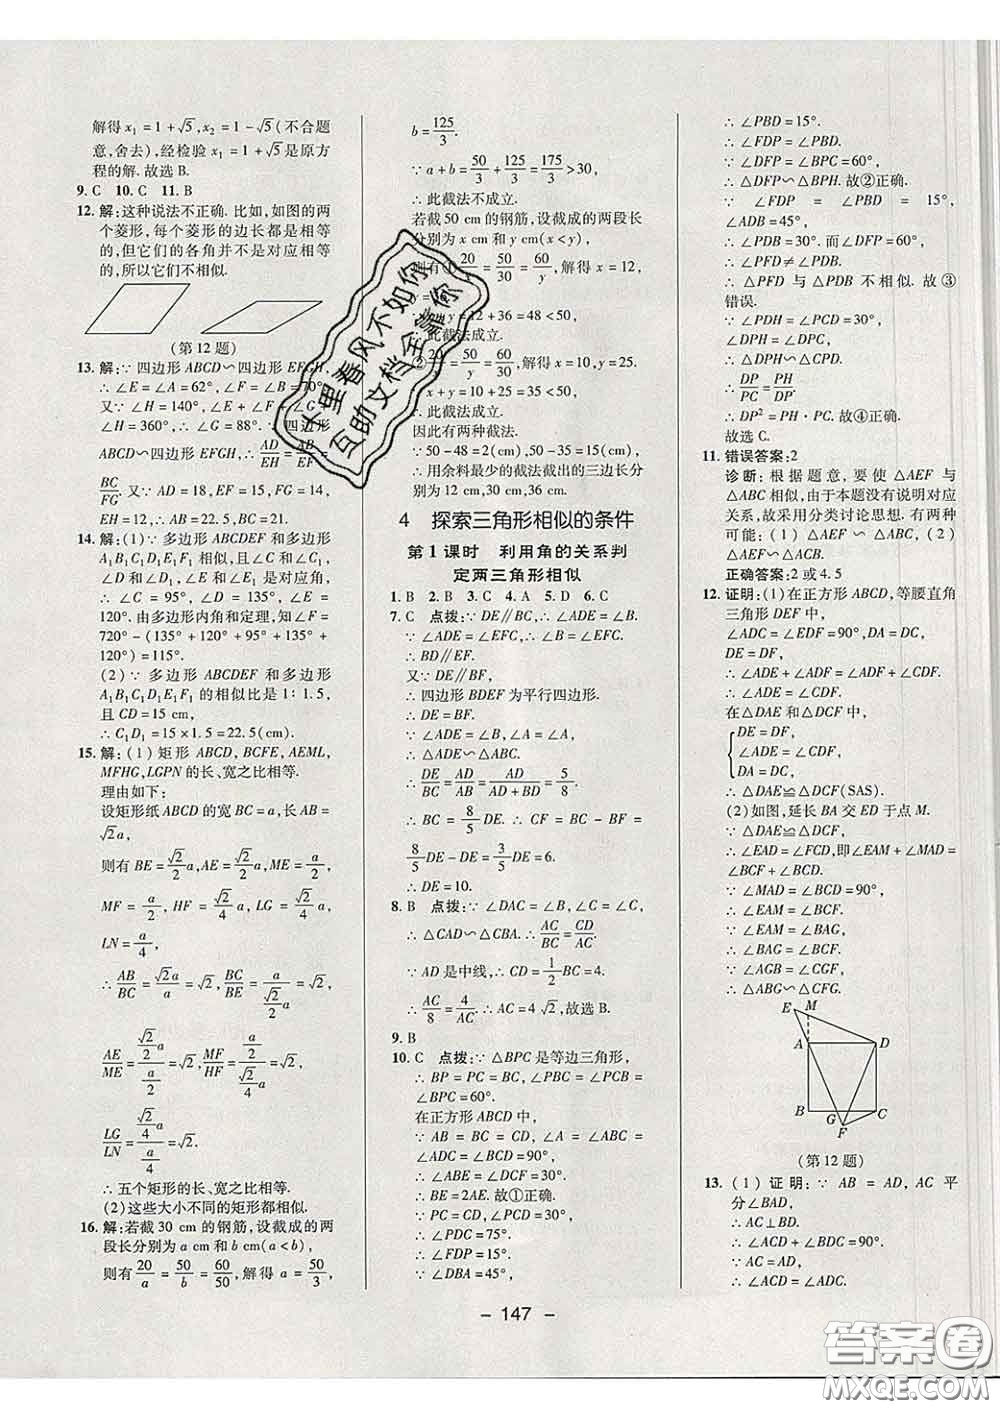 解得 x₁ = 1 + √5, x₂ = 1 − √5 (不合题
意,舍去),经检验 x₁ = 1 + √5 是原方
程的解. 故选 B.
9. C 10. C 11. B
12. 解:这种说法不正确. 比如,如图的两
个菱形,每个菱形的边长都是相等
的,但它们的各角并不是对应相等
的,所以它们不相似.
(第 12 题)
13. 解:∵ 四边形 ABCD∽四边形 EFGH,
∴ ∠E = ∠A = 62°, ∠F = ∠B = 70°.
∵ ∠H = 140°, ∠E + ∠F + ∠G +
∠H = 360°, ∴ ∠G = 88°. ∵ 四边形
ABCD∽四边形 EFGH, ∴ AB/EF = AD/EH =
BC/FG. 又∵ AD = 18, EF = 15, FG = 14,
EH = 12, ∴ AB = 22.5, BC = 21.
14. 解:(1)∵ 多边形 ABCDEF 和多边形
A₁B₁C₁D₁E₁F₁ 相似,且∠C 和∠C₁、
∠D 和∠D₁、∠E 和∠E₁ 是对应角,
∴ ∠C = 95°, ∠D₁ = 135°, ∠E =
120°. 由多边形内角和定理,知∠F =
720° − (135° + 120° + 95° + 135° +
120°) = 115°.
(2)∵ 多边形 ABCDEF 和多边形
A₁B₁C₁D₁E₁F₁ 的相似比是 1∶1.5,
且 CD = 15 cm,
∴ C₁D₁ = 15×1.5 = 22.5(cm).
15. 解:(1) 矩形 ABCD, BCFE, AEML,
MFHG, LGPN 的长、宽之比相等.
理由如下:
设矩形纸 ABCD 的宽 BC = a,长 AB =
√2a,
则有 BE = √2/2 a, AE = √2/2 a, ME = a/2,
MF = a/2, HF = √2/4 a, LG = √2/4 a,
LN = a/4.
∴ AB/BC = √2a/a = √2, BC/BE = a/(√2/2 a) = √2,
AE/ME = (√2/2 a)/(a/2) = √2, MF/HF = (a/2)/(√2/4 a) = √2,
LG/LN = (√2/4 a)/(a/4) = √2.
∴ 五个矩形的长、宽之比相等.
(2)这些大小不同的矩形都相似.
16. 解:若截 30 cm 的钢筋,设截成的两
段长分别为 a cm 和 b cm(a < b),
则有 20/a = 50/b = 60/50, 解得 a = 50/3,
b = 125/3.
∵ a + b = 50/3 + 125/3 = 175/3 > 30,
∴ 此截法不成立.
若截 50 cm 的钢筋,设截成的两段长
分别为 x cm 和 y cm(x < y),
则有① 20/x = 50/30 = 60/y, 解得 x = 12,
= 12 + 36 = 48 < 50,
∴ 此截法成立.
② 20/x = 50/y = 60/30, 解得 x = 10, y = 25.
x + y = 10 + 25 = 35 < 50,
∴ 此截法成立.
因此有两种截法.
∵ 50 − 48 = 2(cm), 50 − 35 = 15(cm),
∴ 用余料最少的截法截出的三边长分
别为 12 cm,30 cm,36 cm.
4 探索三角形相似的条件
第 1 课时 利用角的关系判
定两三角形相似
1. B 2. B 3. C 4. A 5. D 6. C
7. C 点拨:∵ DE∥BC, ∴ ∠ADE = ∠B.
∵ ∠ADE = ∠EFC, ∴ ∠B = ∠EFC.
∴ BD∥EF.
又∵ DE∥BC,
∴ 四边形 BDEF 为平行四边形.
∴ DE = BF.
∵ ∠ADE = ∠B, ∠A = ∠A,
∴ △ADE∽△ABC.
∴ DE/BC = AD/AB = AD/(AD + BD) = 5/8.
∴ BC = 8/5 DE. ∴ CF = BC − BF =
8/5 DE − DE = 3/5 DE = 6.
∴ DE = 10.
8. B 点拨:∵ ∠DAC = ∠B, ∠C = ∠C,
∴ △CAD∽△CBA. ∴ AC/BC = CD/AC.
∵ AD 是中线, ∴ CD = 1/2 BC = 4.
∴ AC/8 = 4/AC. ∴ AC = 4√2, 故选 B.
9. B
10. C 点拨:∵ △BPC 是等边三角形,
∴ BP = PC = BC, ∠PBC = ∠PCB =
∠BPC = 60°.
在正方形 ABCD 中,
∵ AB = BC = CD, ∠A = ∠ABC =
∠ADC = ∠BCD = 90°,
∴ ∠ABE = ∠DCF = 30°.
∴ BE = 2AE. 故①正确.
∵ PC = CD, ∠PCD = 30°,
∴ ∠PDC = 75°.
∴ ∠FDP = 15°.
∵ ∠DBA = 45°,
∴ ∠PBD = 15°.
∴ ∠FDP = ∠PBD.
∵ ∠DFP = ∠BPC = 60°,
∴ △DFP∽△BPH. 故②正确.
∵ ∠FDP = ∠PBD = 15°,
∠ADB = 45°,
∴ ∠PDB = 30°. 而∠DFP = 60°,
∴ ∠PFD ≠ ∠PDB.
∴ △PFD 与 △PDB 不相似. 故③
错误.
∵ ∠PDH = ∠PCD = 30°,
∠DPH = ∠DPC,
∴ △DPH∽△CPD.
∴ DP/PC = PH/DP.
∴ DP² = PH·PC. 故④正确.
故选 C.
11. 错误答案:2
诊断:根据题意,要使 △AEF 与
△ABC 相似,由于本题没有说明对应
关系,故采用分类讨论思想. 有两种
可能:(1) △ABC∽△AEF, (2)
△ABC∽△AFE.
正确答案:2 或 4.5
12. 证明:(1)在正方形 ABCD,等腰直角
三角形 DEF 中,
∠ADC = ∠EDF = 90°, DA = DC,
DE = DF,
∴ ∠ADE + ∠ADF = ∠ADF + ∠CDF.
∴ ∠ADE = ∠CDF.
在△DAE 和△DCF 中,
DE = DF,
∠ADE = ∠CDF,
DA = DC,
∴ △DAE≌△DCF(SAS).
(2)如图,延长 BA 交 ED 于点 M.
∵ △DAE≌△DCF,
∴ ∠EAD = ∠FCD,即∠EAM + ∠MAD =
∠BCF + ∠BCD.
∵ ∠MAD = ∠BCD = 90°,
∴ ∠EAM = ∠BCF.
∵ ∠EAM = ∠BAG,
∴ ∠BAG = ∠BCF.
∵ ∠AGB = ∠CGF,
∴ △ABG∽△CFG.
E M
A D
B G C
F
(第 12 题)
13. (1) 证明:∵ AB = AD, AC 平
分∠BAD,
∴ AC⊥BD.
∴ ∠ACD + ∠BDC = 90°.
∵ AC = AD,
∴ ∠ACD = ∠ADC.
- 147 -
千里春风不如你
互助文档全靠你
答案圈
MXQE.COM